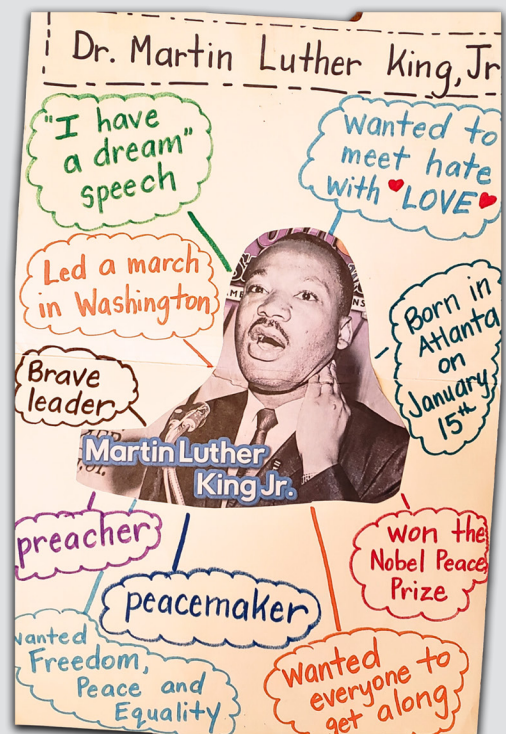 Dr. Martin Luther King, Jr
"I have
a dream"
speech
Wanted to
meet hate
with LOVE
Led a march
in Washington
Born in
Atlanta
on
January
15th
Brave
leader
Martin Luther
King Jr.
preacher
won the
Nobel Peace
Prize
peacemaker
wanted
Freedom,
Peace and
Equality
Wanted
everyone to
get along